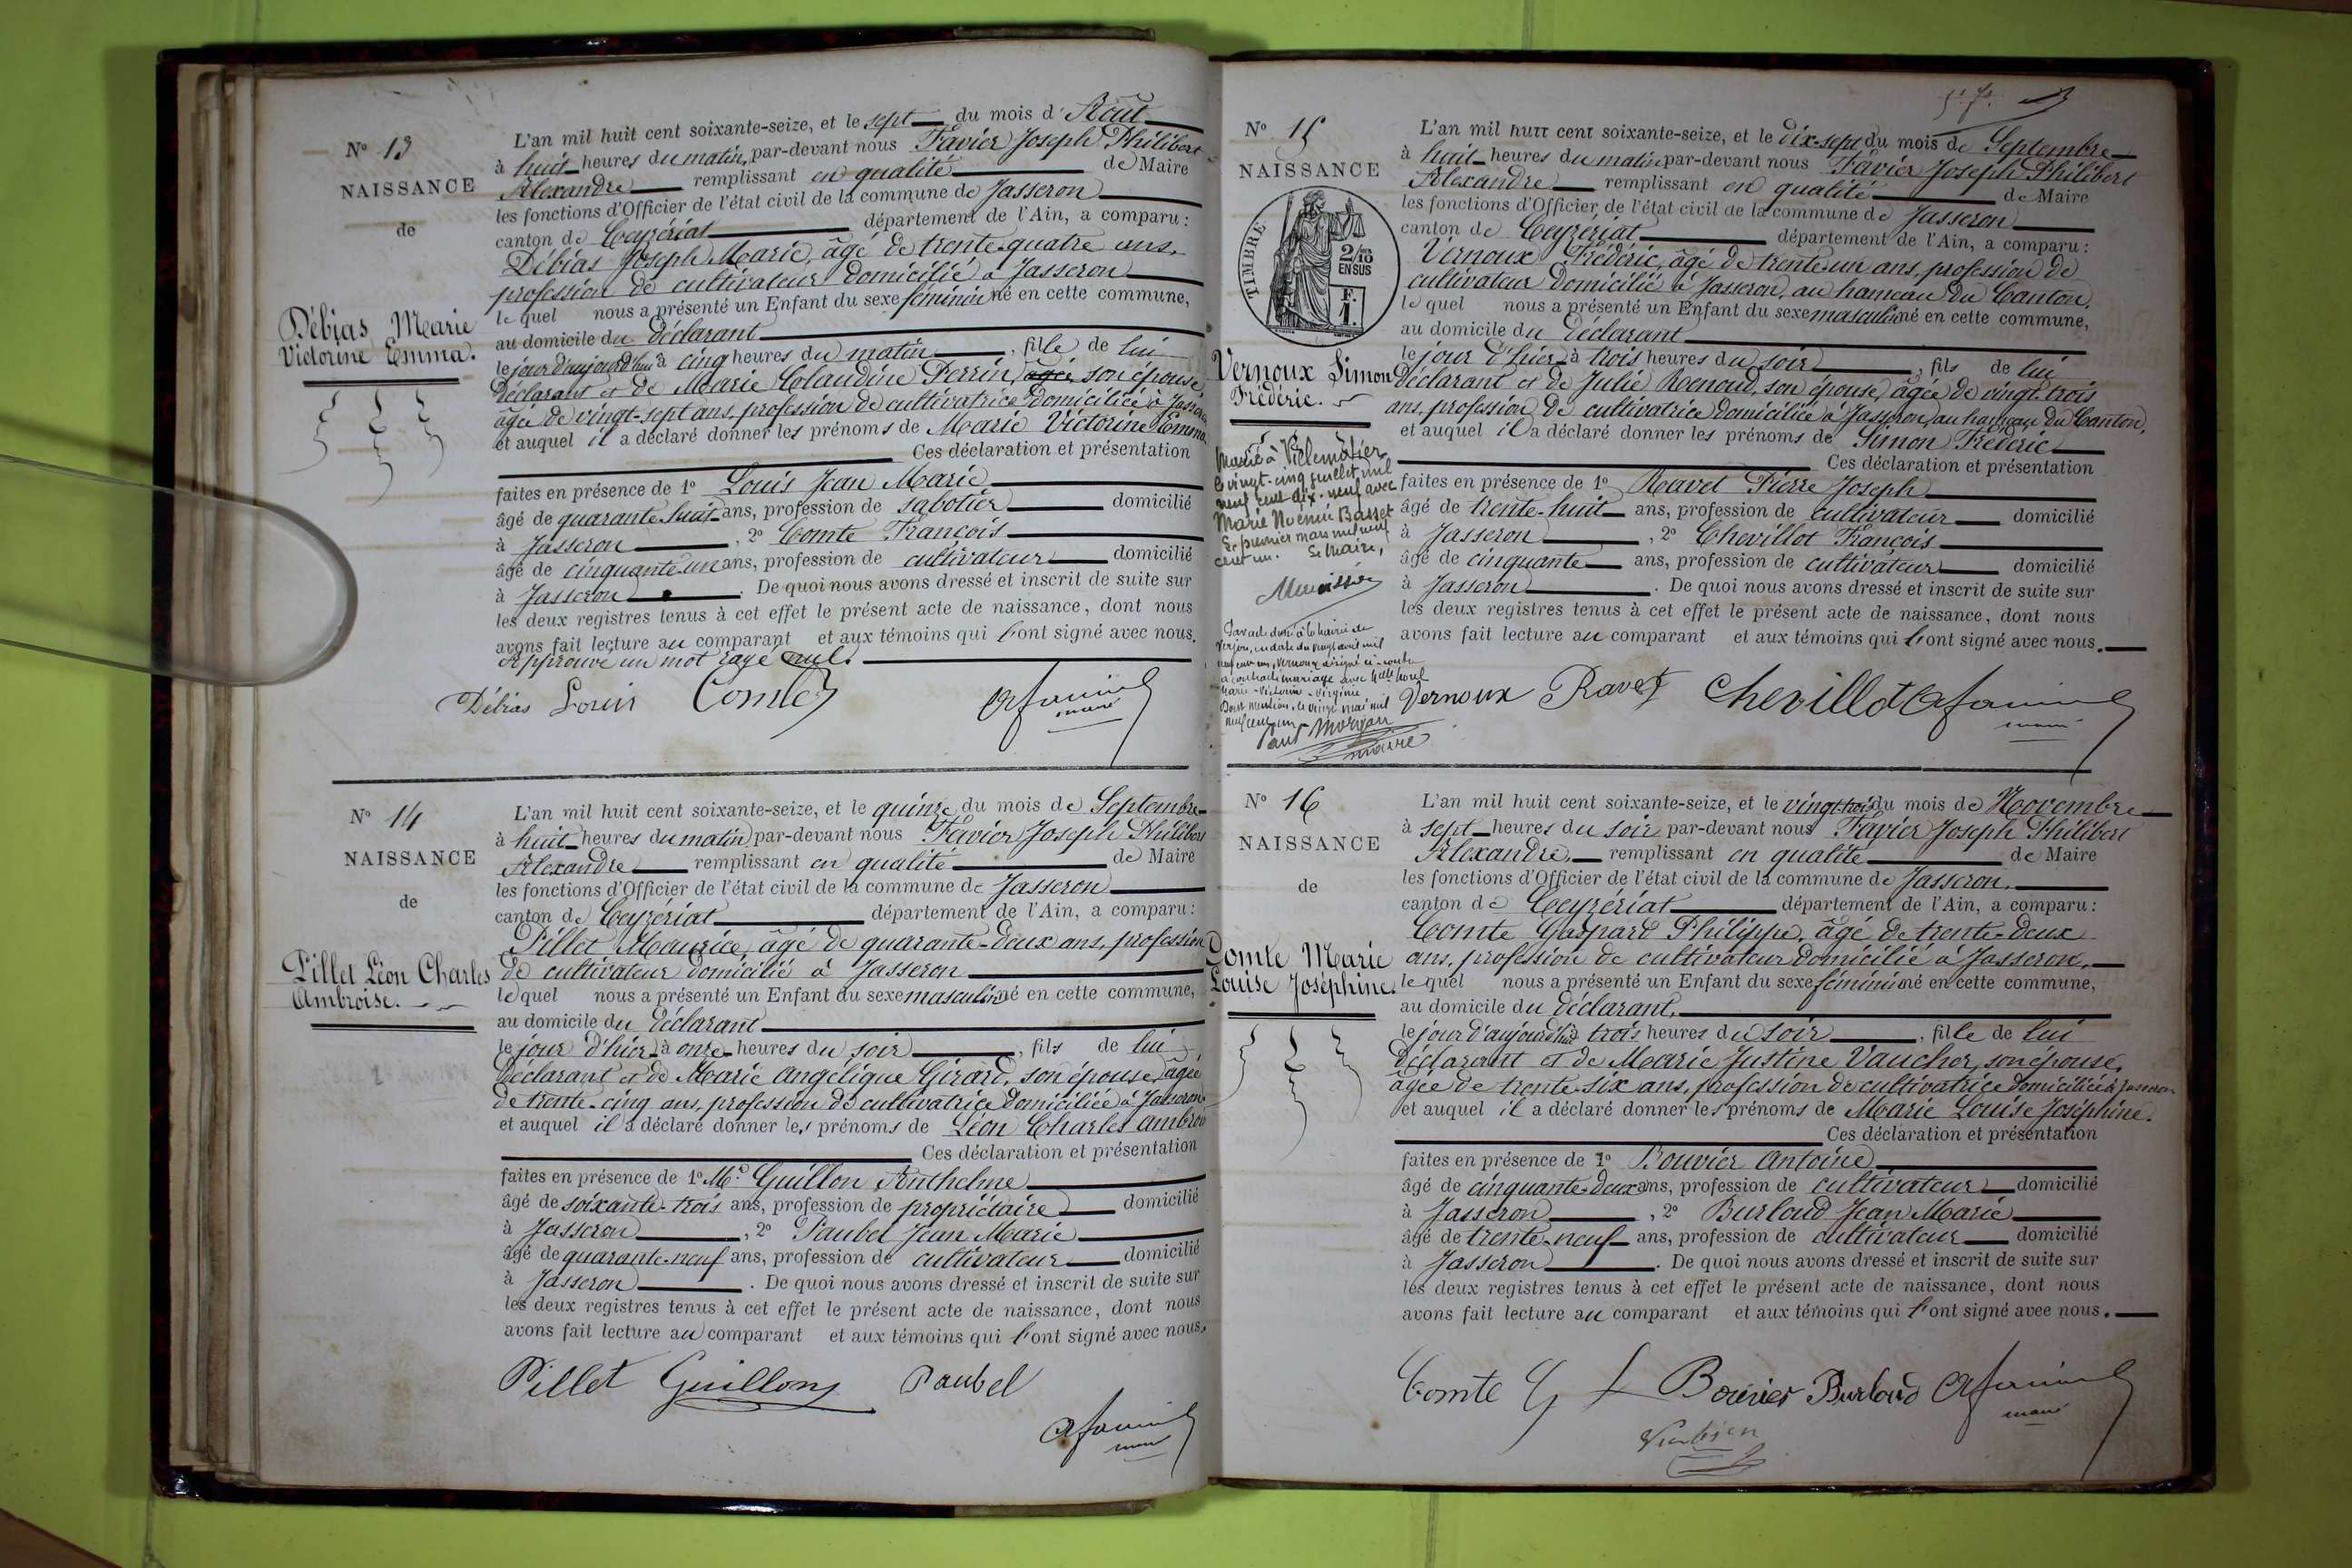 N° 13
NAISSANCE
de
Débias Marie
Victorine Emma.
L'an mil huit cent soixante-seize, et le sept du mois d'Août
à huit heures du matin, par-devant nous Favier Joseph Philibert
Alexandre remplissant en qualité de Maire
les fonctions d'Officier de l'état civil de la commune de Jasseron
canton de Ceyzériat département de l'Ain, a comparu :
Débias Joseph Marie, âgé de trente-quatre ans,
profession de cultivateur domicilié à Jasseron
lequel nous a présenté un Enfant du sexe féminin né en cette commune,
au domicile du déclarant
le jour d'aujourd'hui à cinq heures du matin, fille de lui
déclarant et de Marie Claudine Perrin, âgée, son épouse
âgée de vingt-sept ans, profession de cultivatrice domiciliée à Jasseron
et auquel il a déclaré donner les prénoms de Marie Victorine Emma
Ces déclaration et présentation
faites en présence de 1° Louis Jean Marie
âgé de quarante-huit ans, profession de sabotier domicilié
à Jasseron, 2° Comte François
âgé de cinquante-un ans, profession de cultivateur domicilié
à Jasseron. De quoi nous avons dressé et inscrit de suite sur
les deux registres tenus à cet effet le présent acte de naissance, dont nous
avons fait lecture au comparant et aux témoins qui l'ont signé avec nous.
Approuvé un mot rayé nul.
Débias Louis Comte
maire
N° 14
NAISSANCE
de
Pillet Léon Charles
Ambroise.
L'an mil huit cent soixante-seize, et le quinze du mois de Septembre
à huit heures du matin par-devant nous Favier Joseph Philibert
Alexandre remplissant en qualité de Maire
les fonctions d'Officier de l'état civil de la commune de Jasseron
canton de Ceyzériat département de l'Ain, a comparu :
Pillet Maurice, âgé de quarante-deux ans, profession
de cultivateur domicilié à Jasseron
lequel nous a présenté un Enfant du sexe masculin né en cette commune,
au domicile du déclarant
le jour d'hier à onze heures du soir, fils de lui
déclarant et de Marie Angélique Girard, son épouse, âgée
de trente-cinq ans, profession de cultivatrice domiciliée à Jasseron
et auquel il a déclaré donner les prénoms de Léon Charles Ambroise
Ces déclaration et présentation
faites en présence de 1° Mr. Guillon Anthelme
âgé de soixante-trois ans, profession de propriétaire domicilié
à Jasseron, 2° Paubel Jean Marie
âgé de quarante-neuf ans, profession de cultivateur domicilié
à Jasseron. De quoi nous avons dressé et inscrit de suite sur
les deux registres tenus à cet effet le présent acte de naissance, dont nous
avons fait lecture au comparant et aux témoins qui l'ont signé avec nous.
Pillet Guillon Paubel
N° 15
NAISSANCE
TIMBRE
2/10
EN SUS
F.
1.
Vernoux Simon
Frédéric.
Marié à Villemotier
le vingt-cinq juillet mil
neuf cent dix-neuf avec
Marie Noémie Basset
Le premier mars mil neuf
cent un. Le Maire,
neuf cent un, Vernoux désigné ci-contre
a contracté mariage avec Melle
Marie-Victorine-Virginie
Dont mention, le vingt mai mil
neuf cent un
Paul Morgon
maire
L'an mil huit cent soixante-seize, et le dix-sept du mois de Septembre
à huit heures du matin par-devant nous Favier Joseph Philibert
Alexandre remplissant en qualité de Maire
les fonctions d'Officier de l'état civil de la commune de Jasseron
canton de Ceyzériat département de l'Ain, a comparu :
Vernoux Frédéric, âgé de trente-un ans, profession de
cultivateur domicilié à Jasseron, au hameau du Canton,
lequel nous a présenté un Enfant du sexe masculin né en cette commune,
au domicile du déclarant
le jour d'hier à trois heures du soir, fils de lui
déclarant et de Julie Renoud, son épouse, âgée de vingt-trois
ans, profession de cultivatrice domiciliée à Jasseron, au hameau du Canton,
et auquel il a déclaré donner les prénoms de Simon Frédéric
Ces déclaration et présentation
faites en présence de 1° Ravet Pierre Joseph
âgé de trente-huit ans, profession de cultivateur domicilié
à Jasseron, 2° Chevillot François
âgé de cinquante ans, profession de cultivateur domicilié
à Jasseron. De quoi nous avons dressé et inscrit de suite sur
les deux registres tenus à cet effet le présent acte de naissance, dont nous
avons fait lecture au comparant et aux témoins qui l'ont signé avec nous.
Vernoux Ravet Chevillot
N° 16
NAISSANCE
de
Comte Marie
Louise Joséphine.
L'an mil huit cent soixante-seize, et le vingt-trois du mois de Novembre
à sept heures du soir par-devant nous Favier Joseph Philibert
Alexandre, remplissant en qualité de Maire
les fonctions d'Officier de l'état civil de la commune de Jasseron.
canton de Ceyzériat département de l'Ain, a comparu :
Comte Gaspard Philippe, âgé de trente-deux
ans, profession de cultivateur domicilié à Jasseron,
lequel nous a présenté un Enfant du sexe féminin né en cette commune,
au domicile du déclarant,
le jour d'aujourd'hui à trois heures du soir, fille de lui
déclarant et de Marie Justine Vaucher, son épouse,
âgée de trente-six ans, profession de cultivatrice domiciliée à Jasseron
et auquel il a déclaré donner les prénoms de Marie Louise Joséphine.
Ces déclaration et présentation
faites en présence de 1° Bouvier Antoine
âgé de cinquante-deux ans, profession de cultivateur domicilié
à Jasseron, 2° Burloud Jean Marie
âgé de trente-neuf ans, profession de cultivateur domicilié
à Jasseron. De quoi nous avons dressé et inscrit de suite sur
les deux registres tenus à cet effet le présent acte de naissance, dont nous
avons fait lecture au comparant et aux témoins qui l'ont signé avec nous.
Comte G Bouvier Burloud
maire